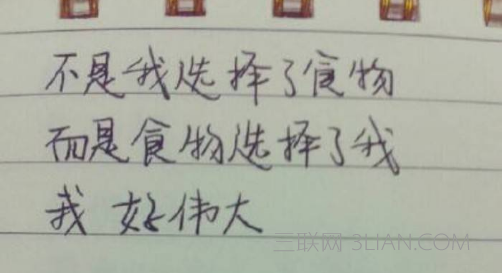 不是我选择了食物
而是食物选择了我
我好伟大
三联网 3LIAN.COM